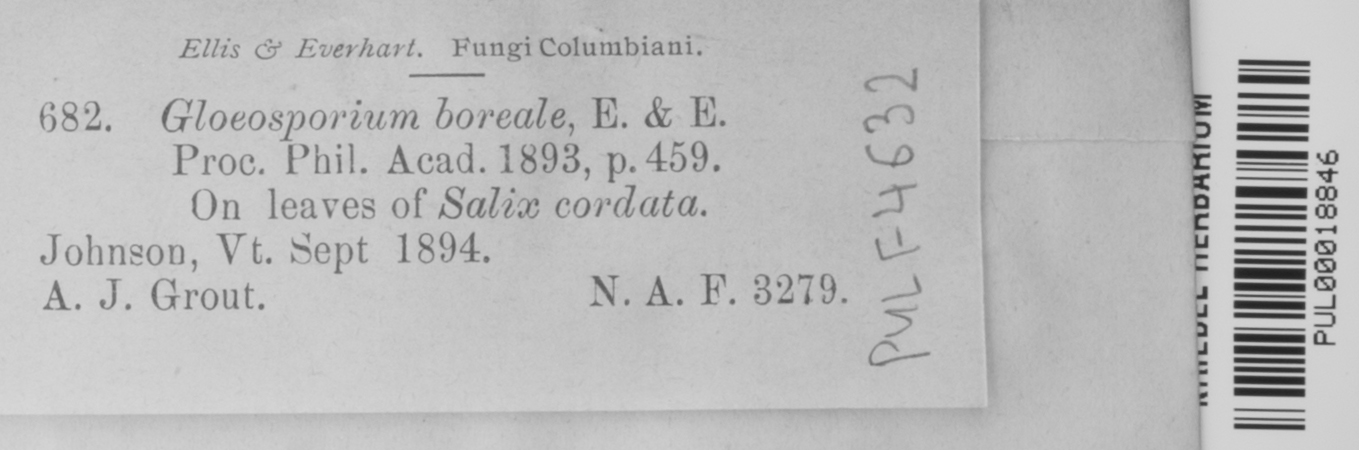 Ellis & Everhart. Fungi Columbiani.
682. Gloeosporium boreale, E. & E.
Proc. Phil. Acad. 1893, p. 459.
On leaves of Salix cordata.
Johnson, Vt. Sept 1894.
A. J. Grout. N. A. F. 3279.
PUL F4632
HERBARIUM
PUL00018846